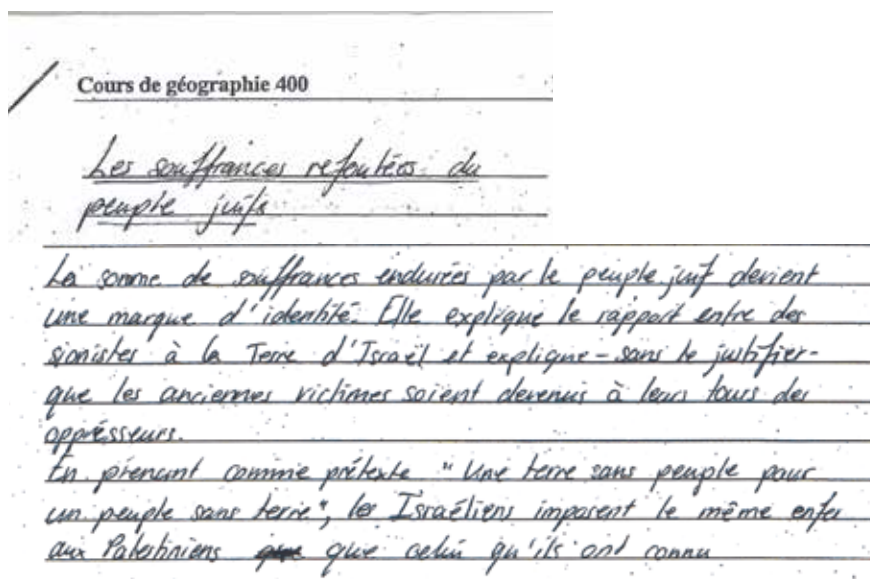 Cours de géographie 400
Les souffrances refoutées du
peuple juifs
La somme de souffrances endurées par le peuple juif devient
une marque d'identité. Elle explique le rapport entre des
sionistes à la Terre d'Israël et explique - sans le justifier -
que les anciennes victimes soient devenus à leurs tours des
opprésseurs.
En prenant comme prétexte "Une terre sans peuple pour
un peuple sans terre", les Israéliens imposent le même enfer
aux Palestiniens que celui qu'ils ont connu